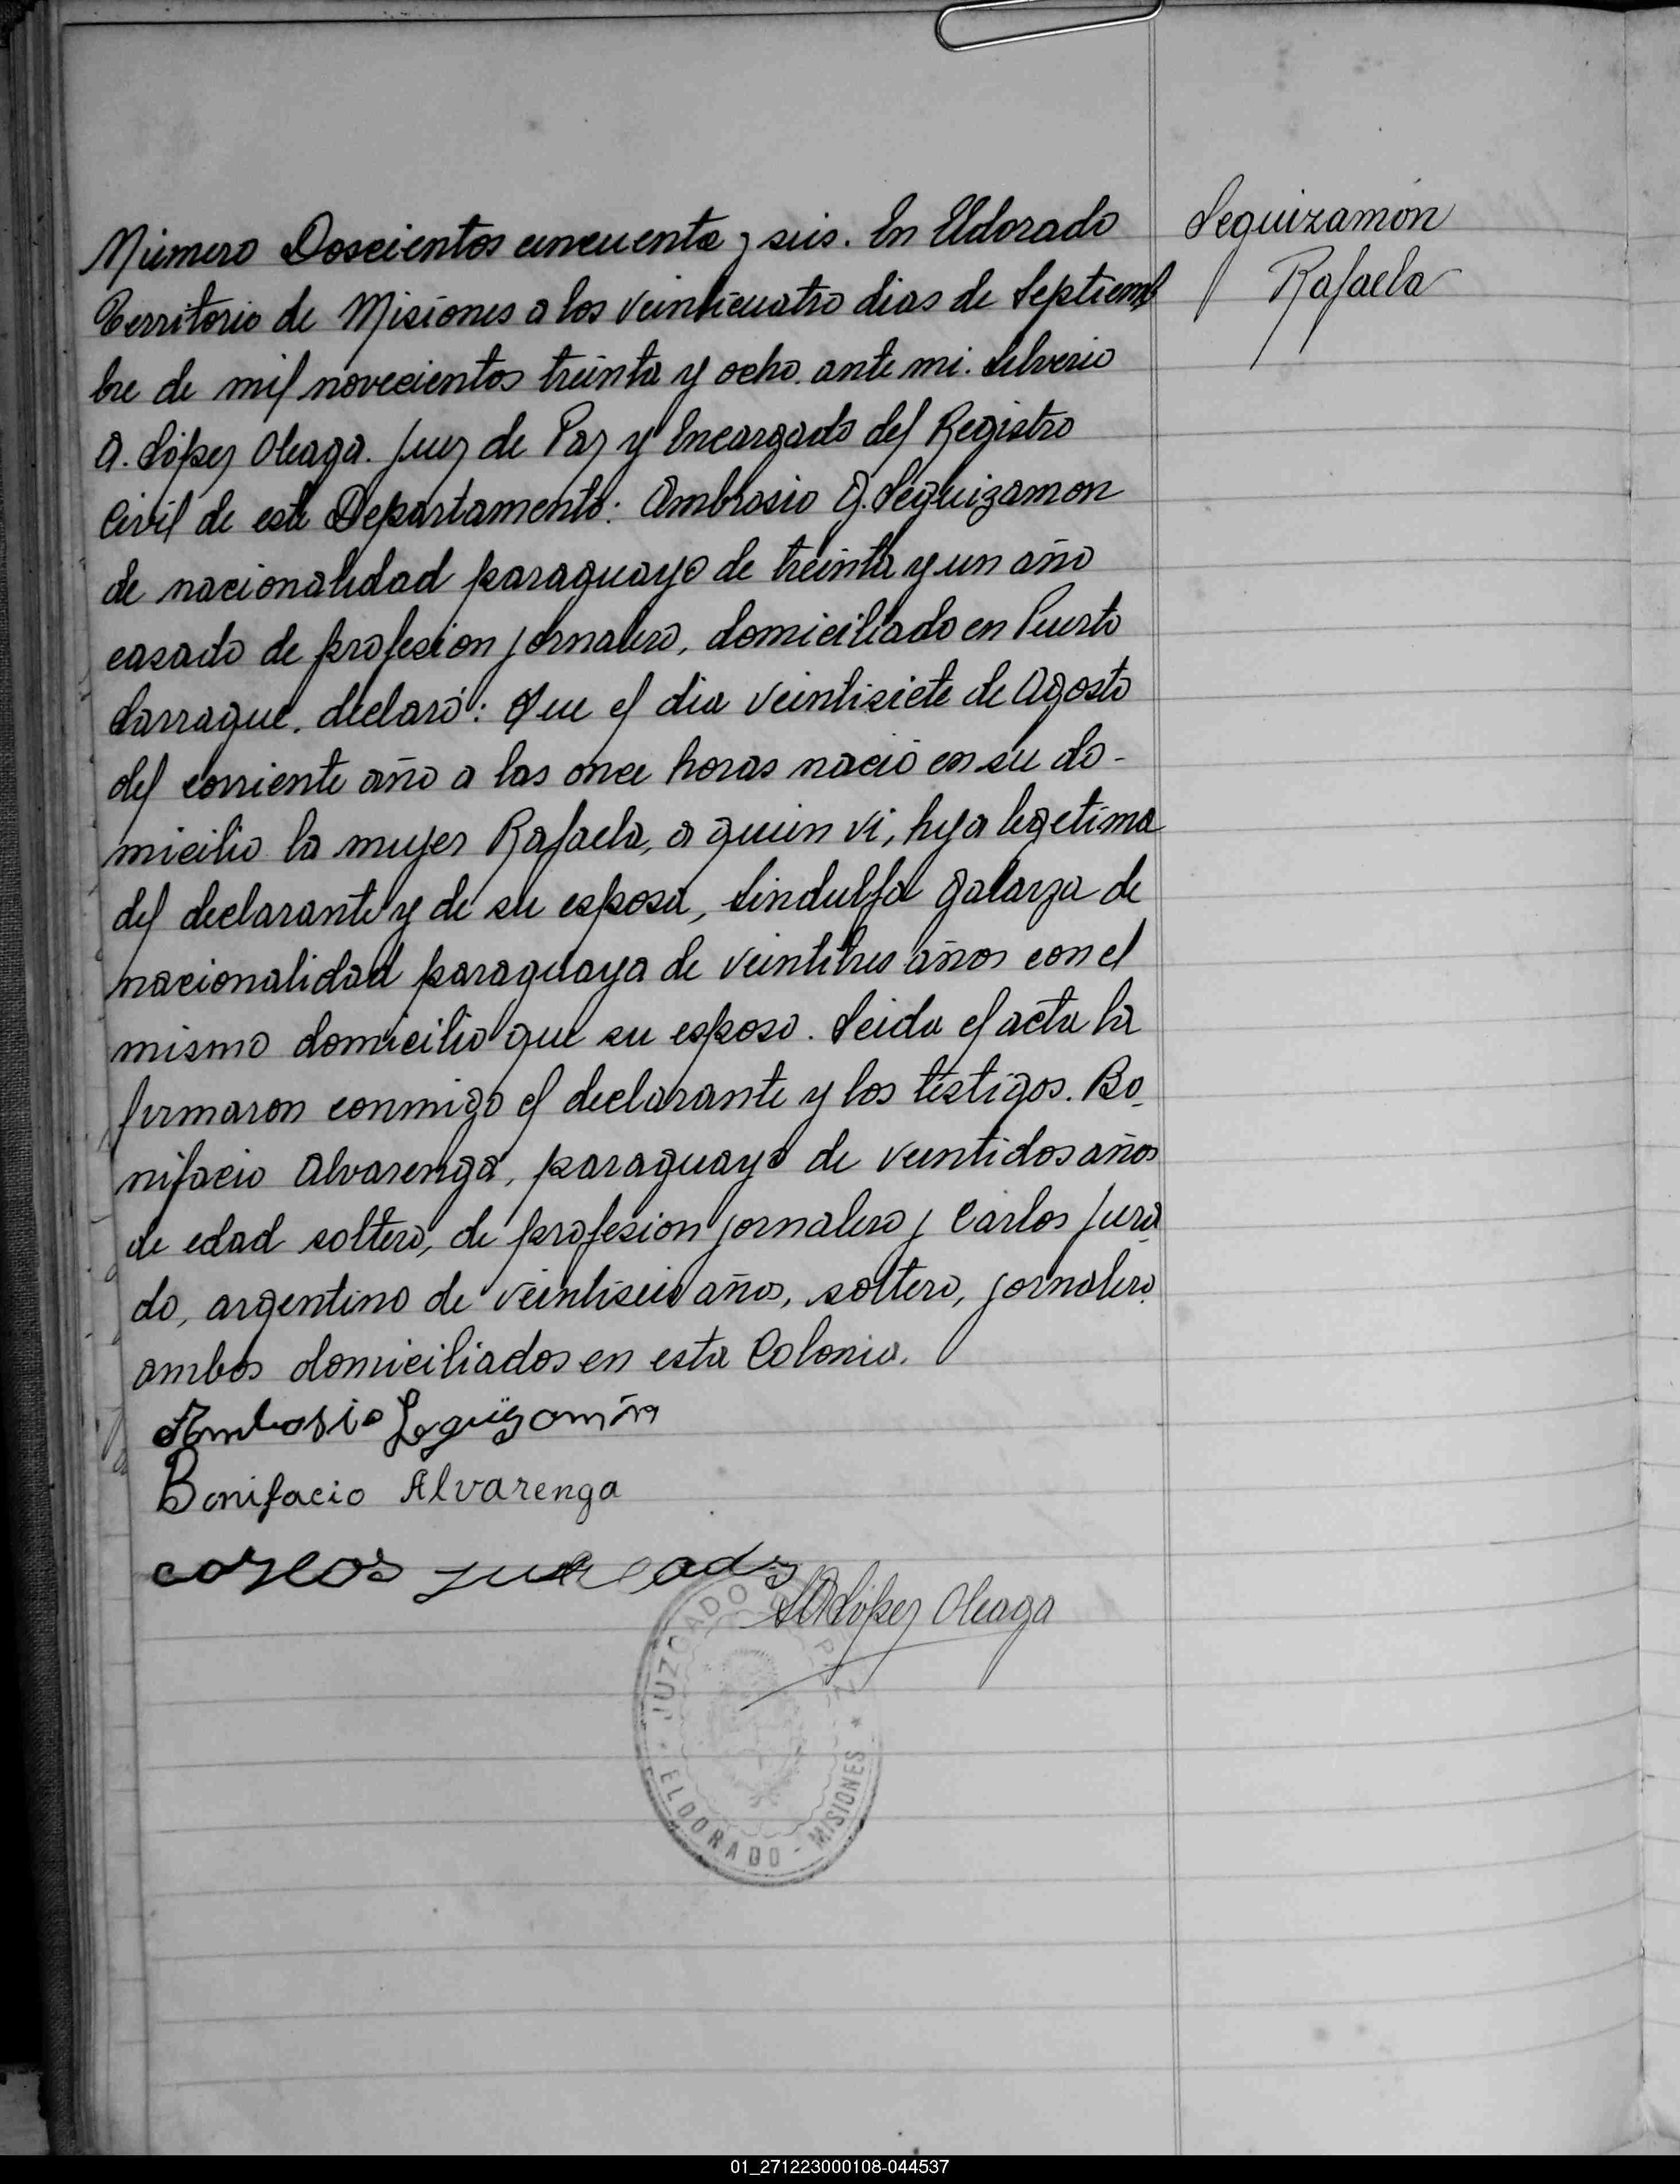 Número Doscientos cincuenta y seis. En Eldorado
Territorio de Misiones a los veinticuatro dias de Septiem
bre de mil novecientos treinta y ocho. ante mi. Silverio
A. López Oleaga. Juez de Paz y Encargado del Registro
Civil de este Departamento: Ambrosio G. Leguizamon
de nacionalidad paraguayo de treinta y un año
casado de profesion jornalero, domiciliado en Puerto
Larrague. declaró: Que el dia veintisiete de Agosto
del corriente año a las once horas nació en su do-
micilio la mujer Rafaela, a quien vi, hija legetima
del declarante y de su esposa, Sindulfa Galarza de
nacionalidad paraguaya de veintitres años con el
mismo domicilio que su esposo. Leida el acta la
firmaron conmigo el declarante y los testigos. Bo-
nifacio Alvarenga, paraguayo de veintidos años
de edad soltero, de profesion jornalero y Carlos Jura
do, argentino de veintiseis años, soltero, jornalero.
ambos domiciliados en esta Colonia.
Ambosio Leguizamón
Bonifacio Alvarenga
carlos jurado
S A López Oleaga
JUZGADO DE PAZ
* ELDORADO - MISIONES *
Leguizamón
Rafaela
01_271223000108-044537